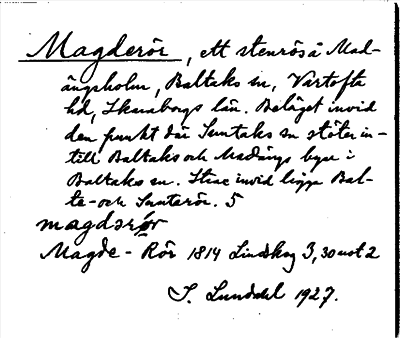 Magderör, ett stenrös å Mad-
ängsholm, Baltaks sn, Vartofta
hd, Skaraborgs län. Beläget invid
den punkt där Suntaks sn stöter in-
till Baltaks och Madängs byar i
Baltaks sn. Strax invid ligga Bal-
te- och Sunterör. 5
magdərør
Magde - Rör 1814 Lindskog 3, 30 not 2
S. Lunddal 1927.